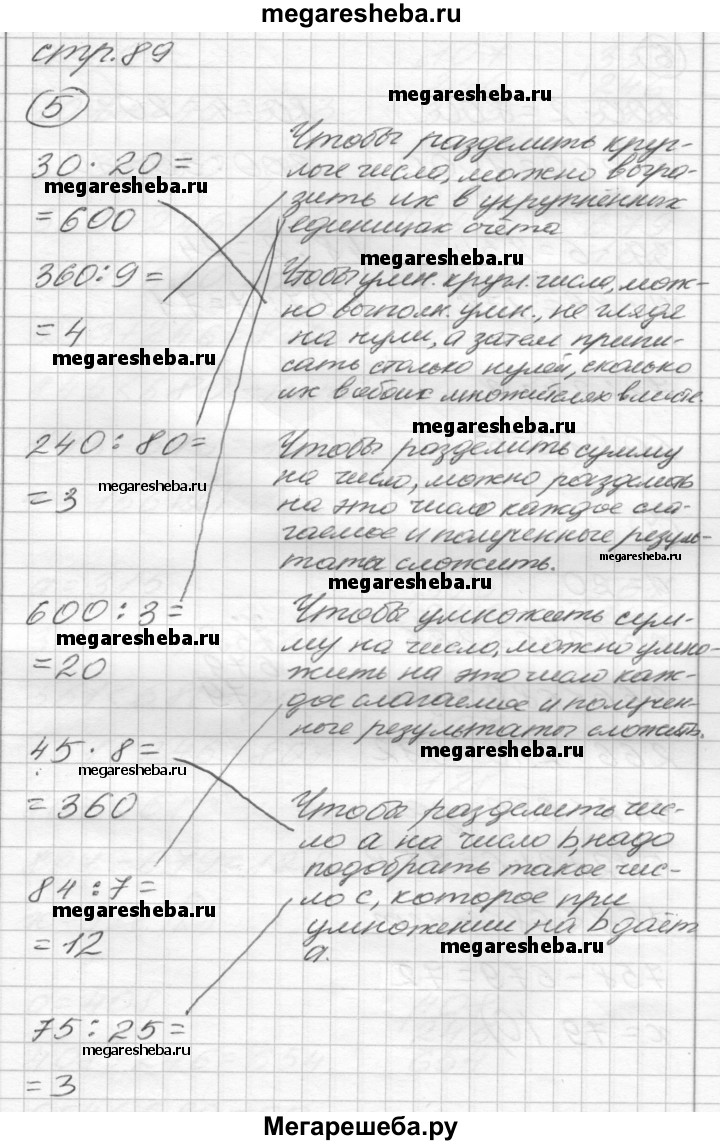 megaresheba.ru
стр. 89
5
megaresheba.ru
30 · 20 =
megaresheba.ru
= 600
Чтобы разделить круг-
лые числа, можно выра-
зить их в укрупнённых
единицах счёта
megaresheba.ru
360 : 9 =
= 4
megaresheba.ru
Чтобы умн. кругл. числа, мож-
но выполн. умн., не глядя
на нули, а затем припи-
сать столько нулей, сколько
их в обоих множителях вместе.
megaresheba.ru
240 : 80 =
megaresheba.ru
= 3
Чтобы разделить сумму
на число, можно разделить
на это число каждое сла-
гаемое и полученные резуль-
таты сложить.
megaresheba.ru
megaresheba.ru
600 : 3 =
megaresheba.ru
= 20
Чтобы умножить сум-
му на число, можно умно-
жить на это число каж-
дое слагаемое и получен-
ные результаты сложить.
megaresheba.ru
45 · 8 =
megaresheba.ru
= 360
Чтобы разделить чис-
ло a на число b, надо
подобрать такое чис-
ло c, которое при
умножении на b даёт
a.
megaresheba.ru
84 : 7 =
megaresheba.ru
= 12
75 : 25 =
megaresheba.ru
= 3
Мегарешеба.ру